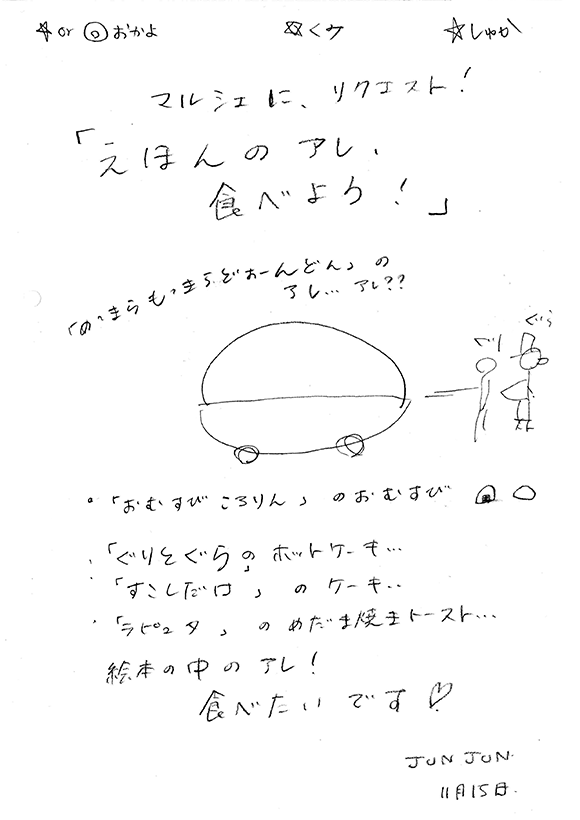 ☆ or ◎ おかよ ☆くみ ☆しゅか
マルシェに、リクエスト!
「えほんのアレ、
食べよう!」
アレ… アレ??
ぐり
ぐら
・「おむすびころりん」のおむすび
・「ぐりとぐら」のホットケーキ…
・「すこしだけ」のケーキ…
・「ラピュタ」のめだま焼きトースト…
絵本の中のアレ!
食べたいです♡
JUN JUN.
11月15日.